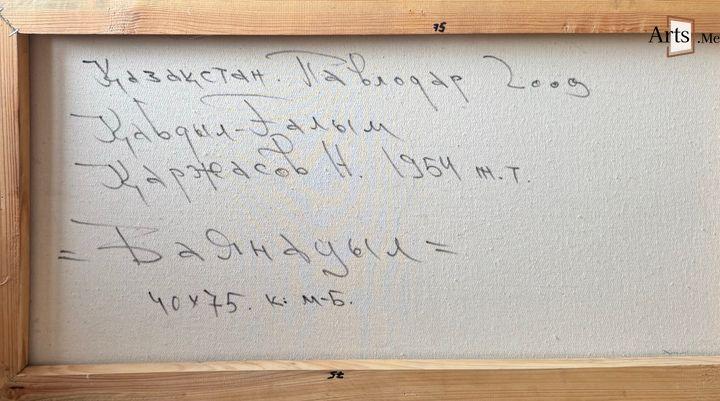 75
Arts.Me
Қазақстан. Павлодар 2009
Қабдыл-Ғалым
Қаржасов Н. 1954 ж.т.
= Баянауыл =
40x75. к. м-б.